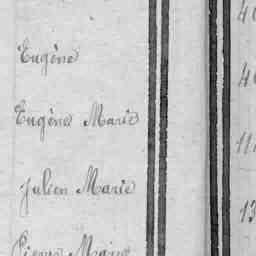 Eugène
Eugène Marie
Julien Marie
Pierre Marie
13